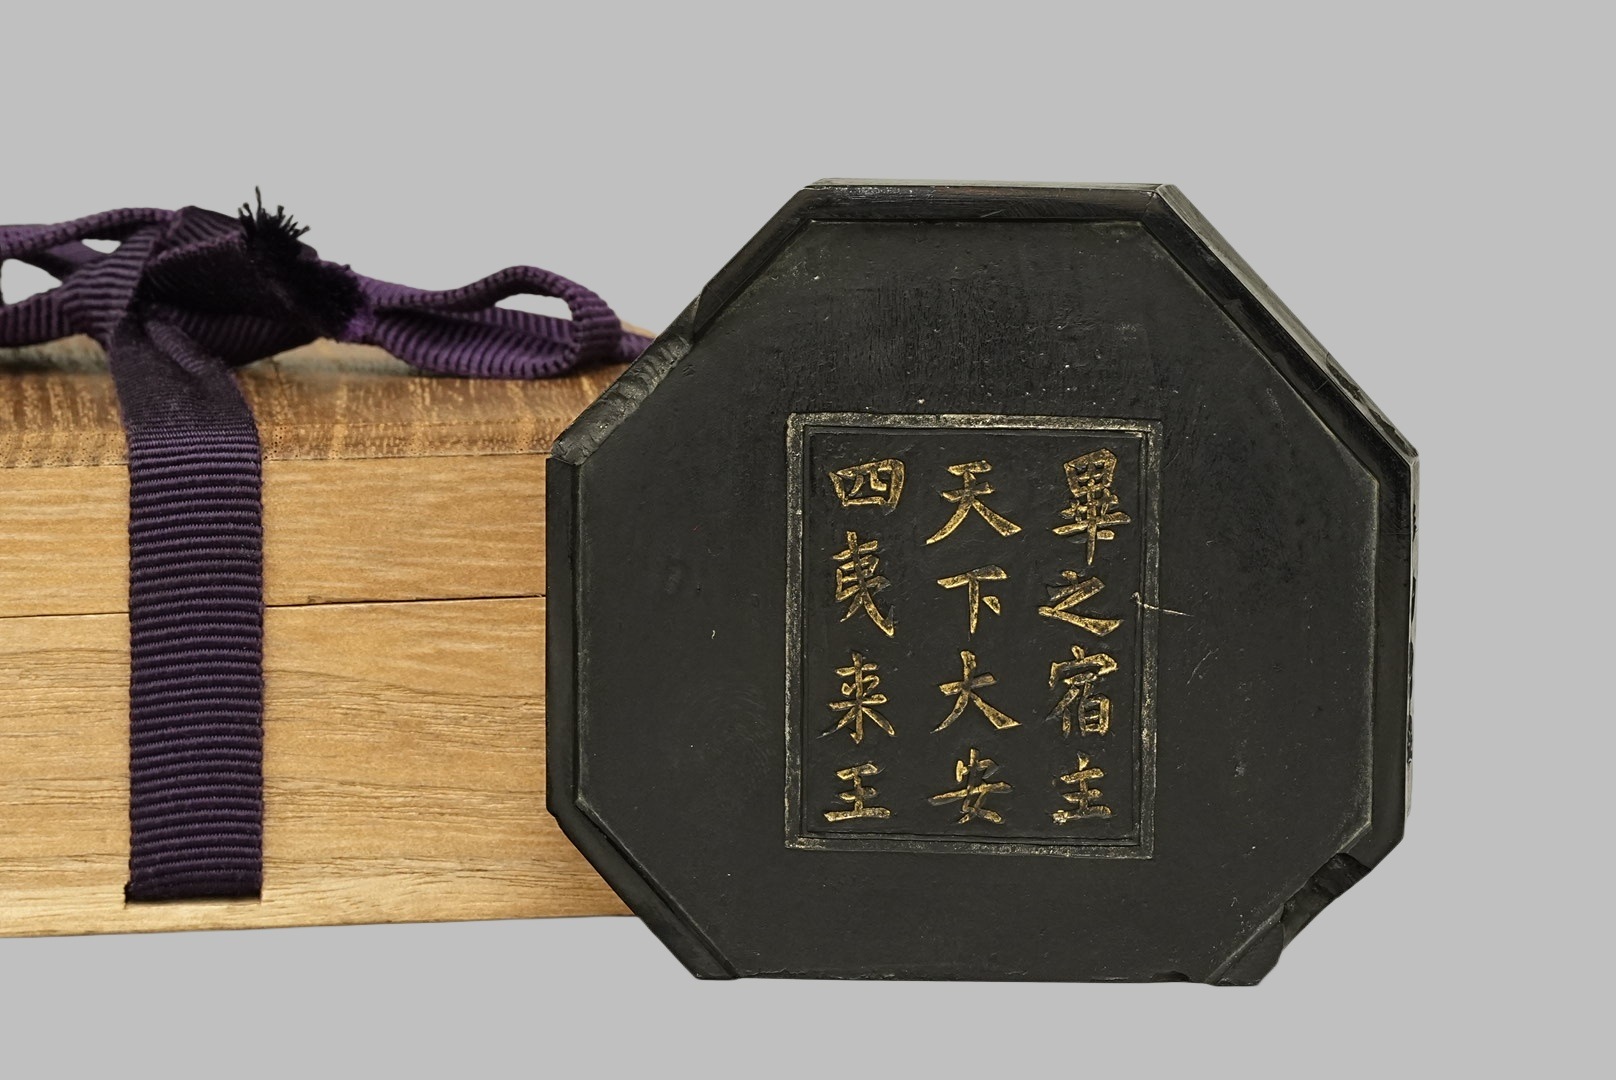 畢之宿主
天下大安
四夷来王